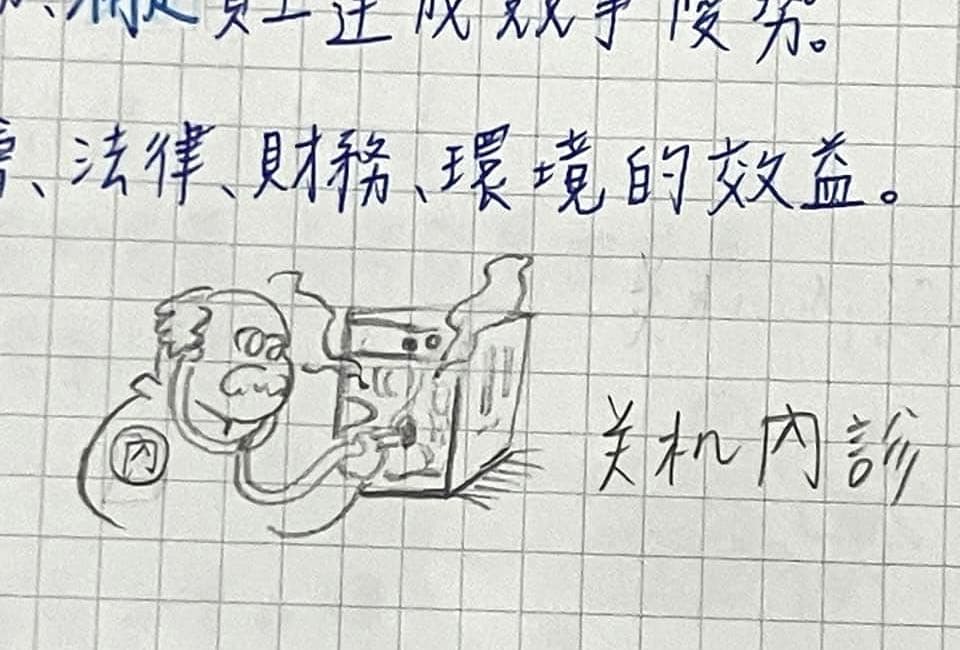 員工達成競爭優势。
、法律、財務、環境的效益。
內
关机內診